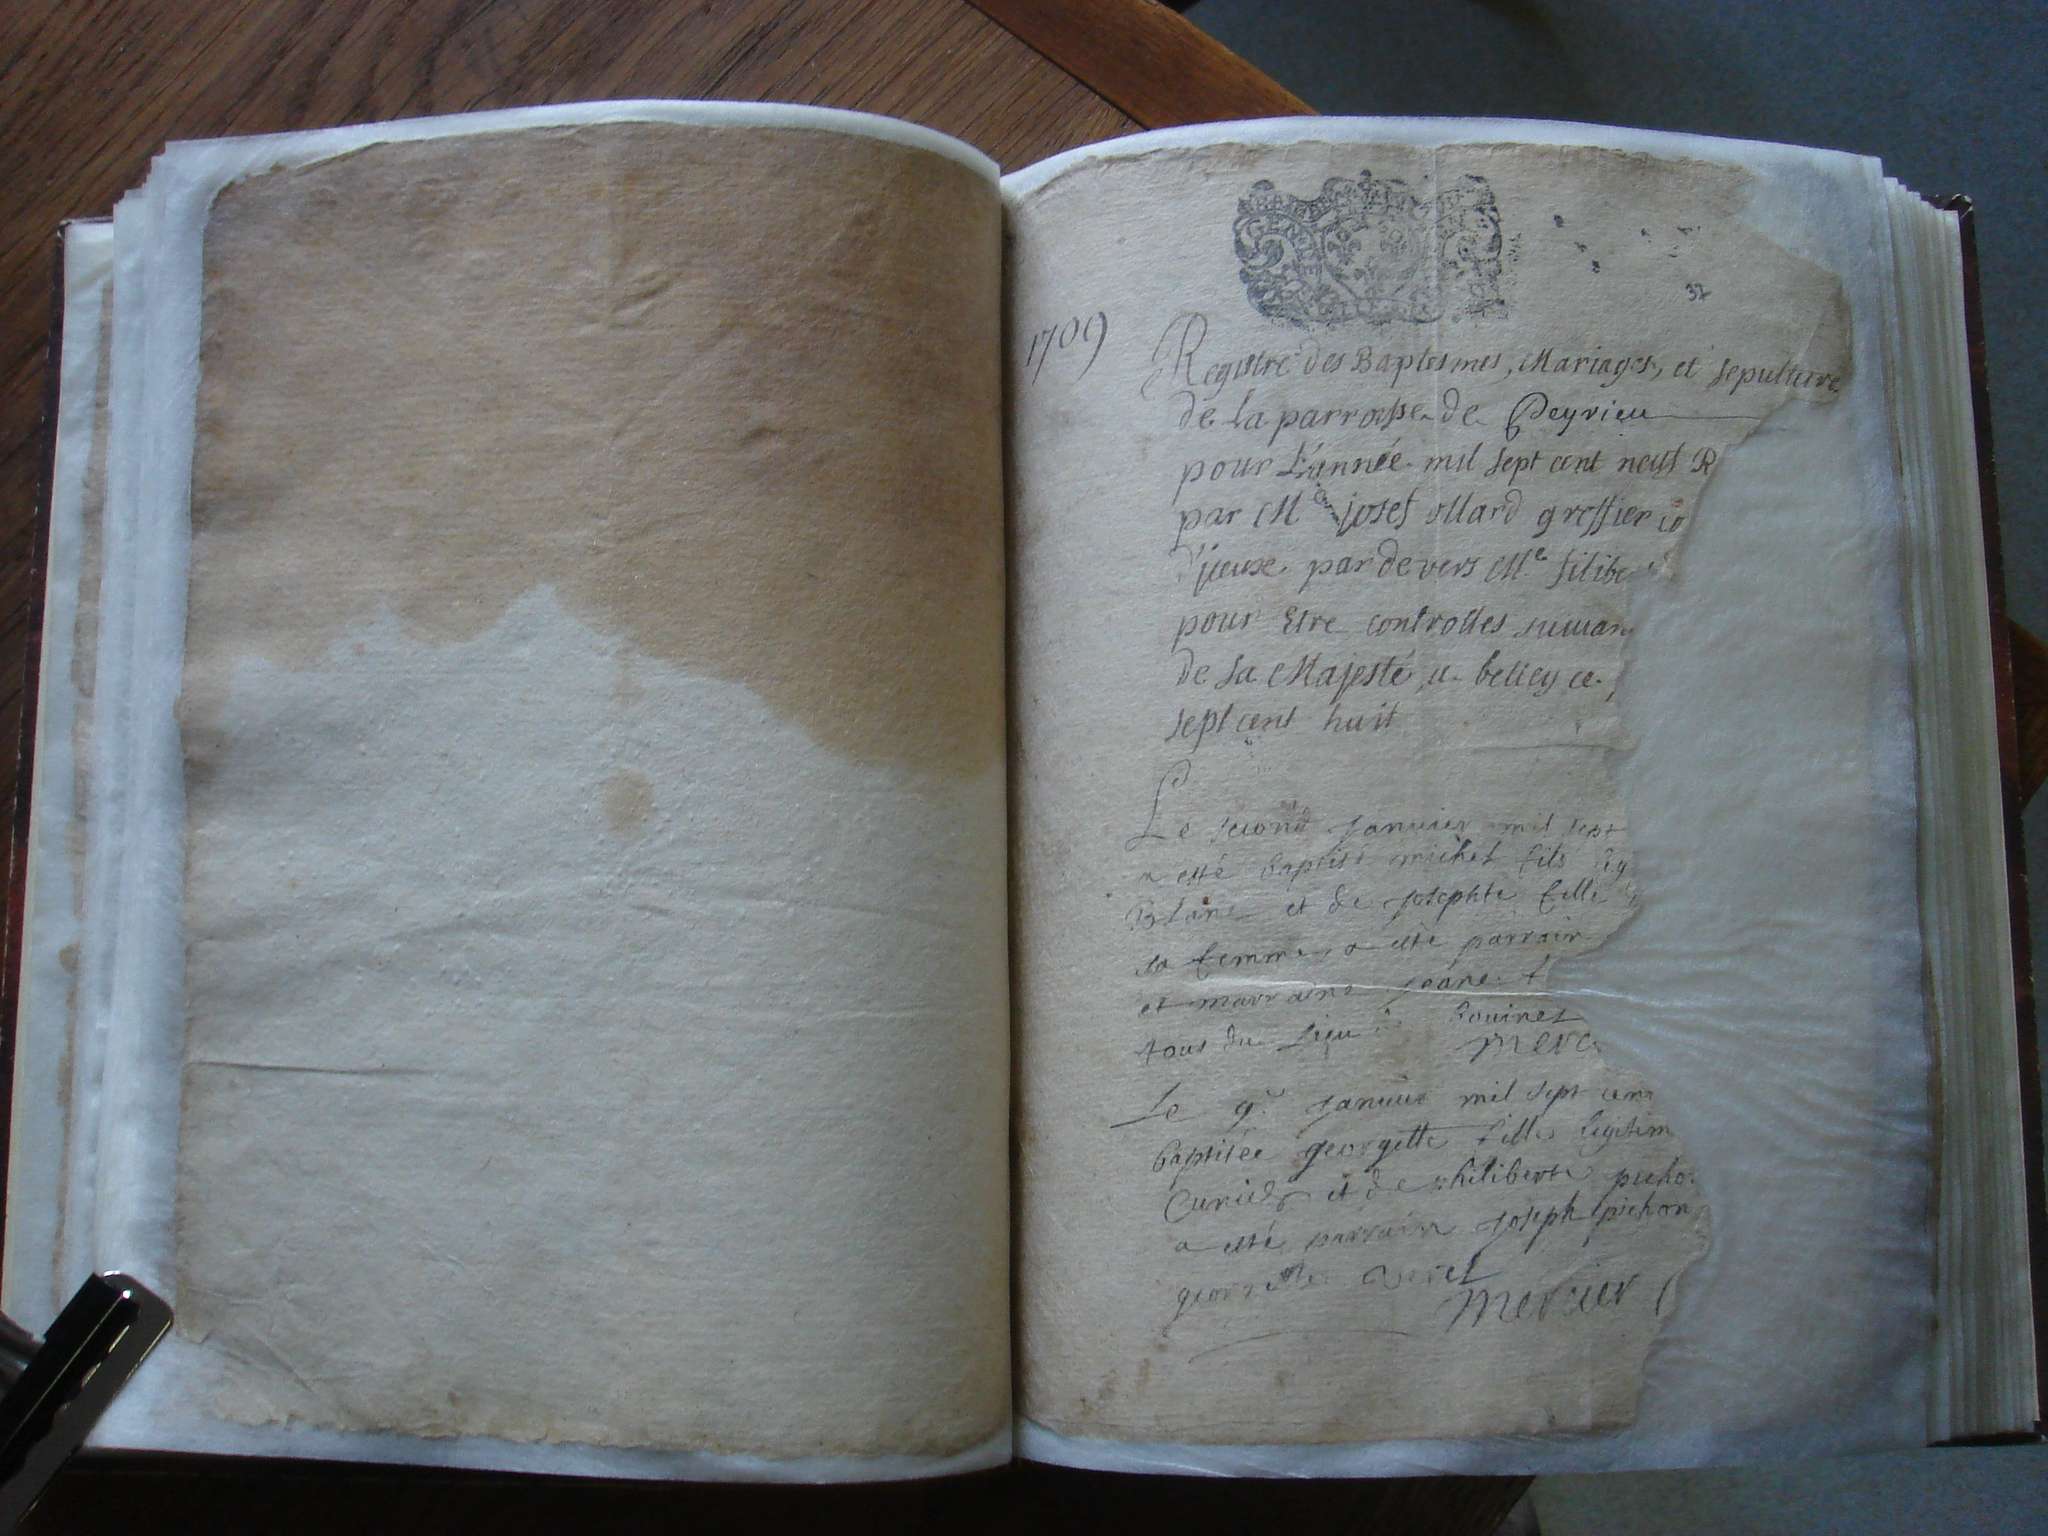 GEN
37
1709
Registre des Baptesmes, Mariages, et sepulture
de la parroisse de Peyrieu
pour L'année mil sept cent neuf R
par Me josef ollard greffier co
pardevers Me filibe
pour Etre controlles suiuan
de sa Majesté a belley ce
sept cent huit
Le second januier mil sept
a esté baptisé michel fils
Blanc et de josephte fille
sa femme, a esté parrain
et marraine jeane
tous du lieu
merc
Le 9e januier mil sept cen
baptisée georgette fille legitim
et de philiberte picho
a esté parrain joseph pichon
georgette
mercier